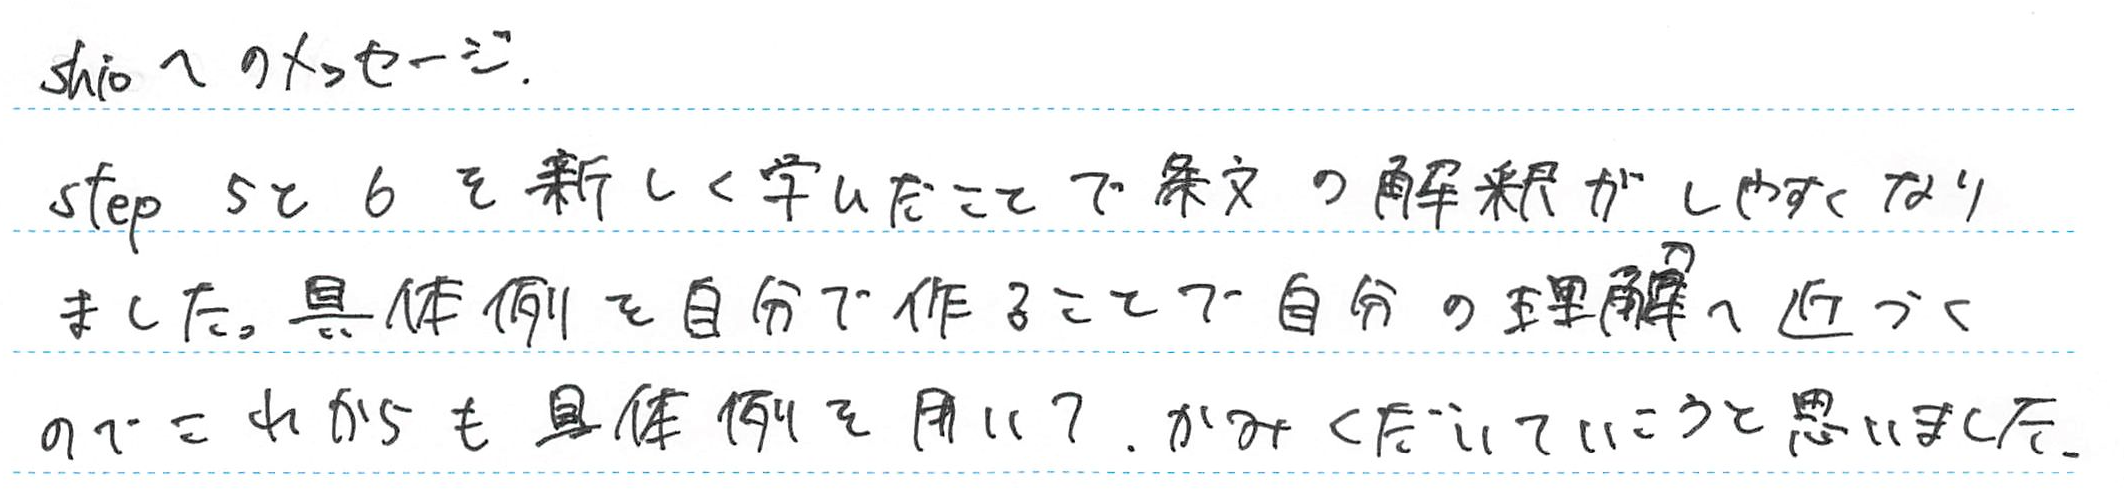 shioへのメッセージ.
step 5と6を新しく学んだことで条文の解釈がしやすくなり
ました。具体例を自分で作ることで自分の理解へ近づく
のでこれからも具体例を用いて.かみくだいていこうと思いました.